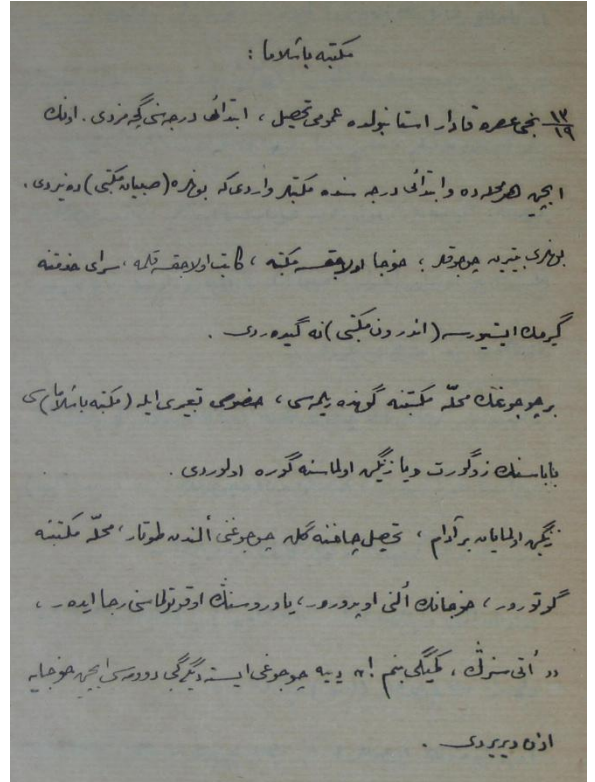 مكتبه باشلاما :
١٣/١٩ نجی عصره قادار استانبولده عمومی تحصیل ، ابتدائی درجه‌سنی گچمزدی . اونك
ایچین هر محله‌ده و ابتدائی درجه‌سنده مكتبلر واردی كه بونلره (صبیان مكتبی) دنیردی .
بونلری بیتیرن چوجوقلر ؛ خوجا اولاجقسه مكتبه ، كاتب اولاجقسه قلمه ، سرای خدمتنه
گیرمك ایستیورسه (اندرون مكتبی) نه گیده‌ردی .
بر چوجوغك محلّه مكتبنه گونده‌ریلمه‌سی ، خصوصی تعبیری ایله (مكتبه باشلاما) سی
باباسنك زوگورت ویا زنگین اولماسنه گوره اولوردی .
زنگین اولمایان بر آدام ، تحصیل چاغنه گلن چوجوغی ألندن طوتار ، محلّه مكتبنه
گوتورور ، خوجانك ألنی اوپدورور ، یاوروسنك اوقوتولماسنی رجا ایده‌ر ،
« أتی سزڭ ، كمیگی بنم !» دییه چوجوغی ایسته‌دیگی گبی دوومه‌سی ایچین خوجایه
اذن ویریردی .